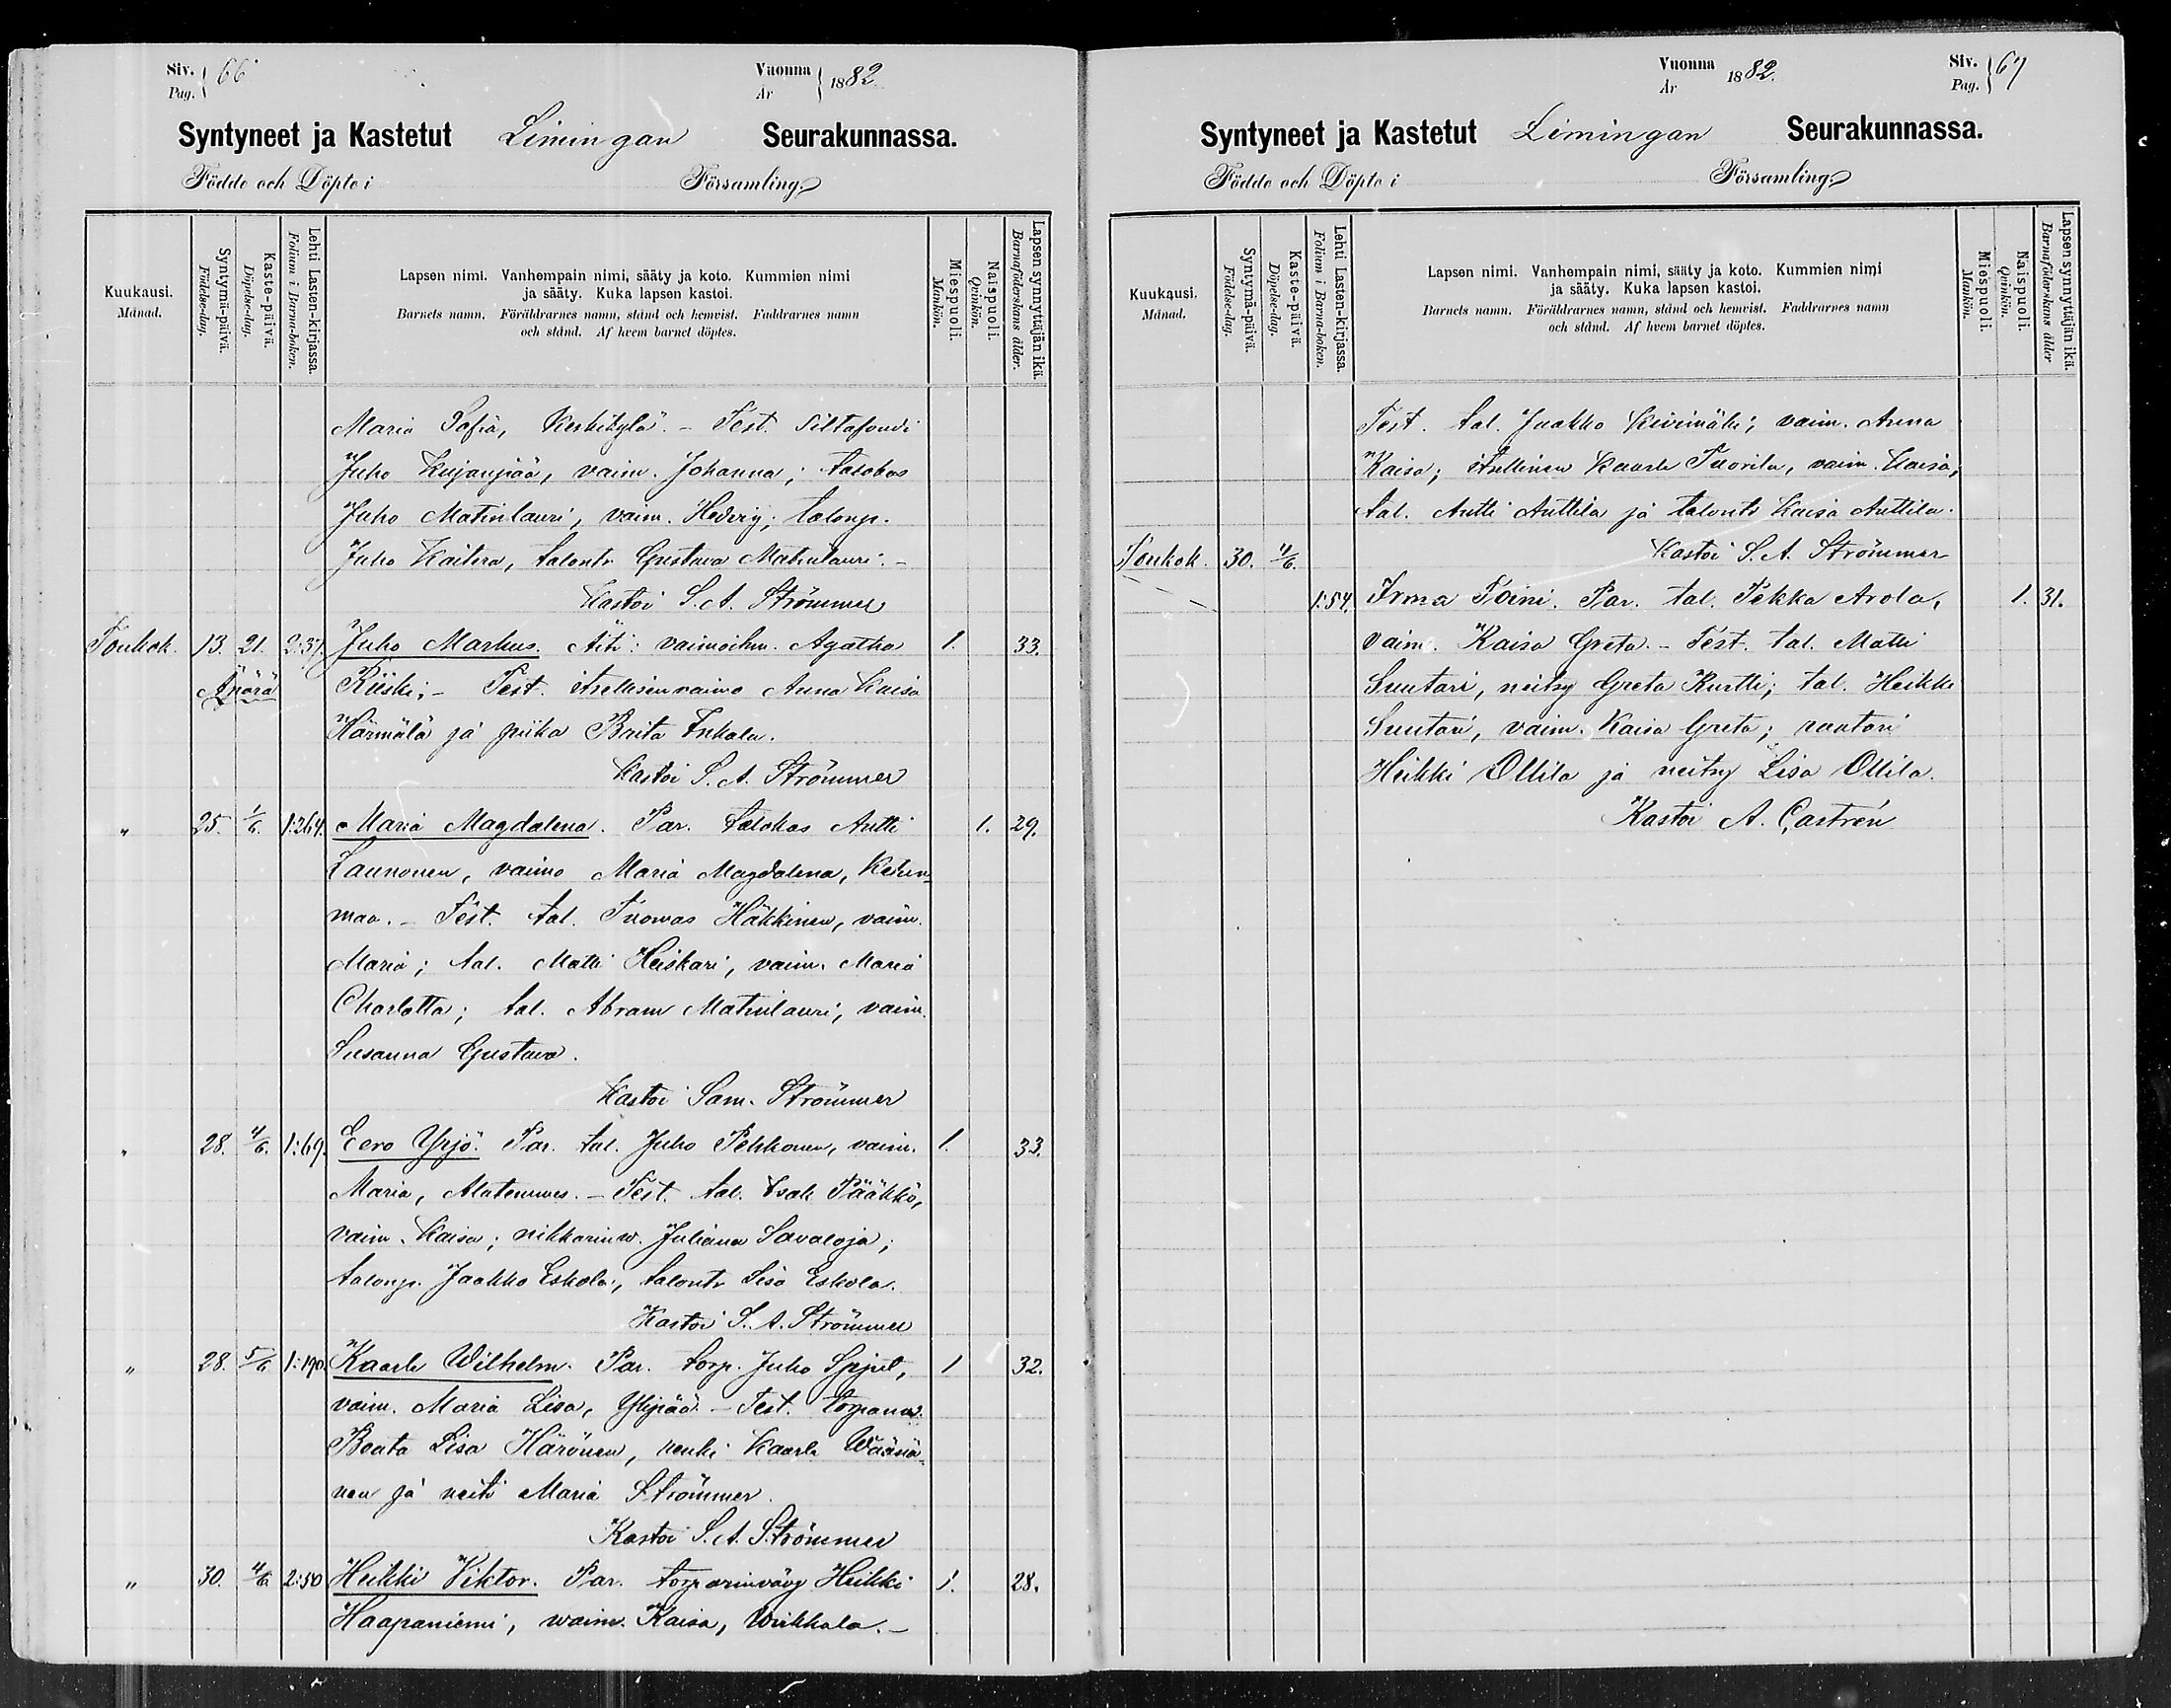 Siv. 66
Pag.
Vuonna 1882.
År
Syntyneet ja Kastetut Limingan Seurakunnassa.
Födde och Döpte i Församling.
Kuukausi.
Månad.
Syntymä-päivä.
Födelse-dag.
Kaste-päivä.
Döpelse-dag.
Lehti Lasten-kirjassa.
Folium i Barna-boken.
Lapsen nimi. Vanhempain nimi, sääty ja koto. Kummien nimi
ja sääty. Kuka lapsen kastoi.
Barnets namn. Föräldrarnes namn, stånd och hemvist. Faddrarnes namn
och stånd. Af hvem barnet döptes.
Miespuoli.
Mankön.
Naispuoli.
Qvinkön.
Lapsen synnyttäjän ikä.
Barnaföderskans ålder.
Maria Sofia, Keskikylä. - Test. siltafouti
Juho Kujanpää, vaim. Johanna; talokas
Juho Matinlauri, vaim. Hedvig; talonp.
Juho Kaitera, talontr Gustava Matinlauri. -
Kastoi S. A. Strömmer
Toukok. 13. 21. 2:37. Juho Markus. Äiti: vaimoihm. Agatha 1. 33.
Äpärä Riiski; - Test. itsellisenvaimo Anna Kaisa
Härmälä ja piika Brita Inkala.
Kastoi S. A. Strömmer
" 25. 1/6. 1:264. Maria Magdalena. Par. talokas Antti 1. 29.
Launonen, vaimo Maria Magdalena, Kedun-
maa. - Test. tal. Tuomas Häkkinen, vaim.
Maria; tal. Matti Heiskari, vaim. Maria
Charlotta; tal. Abram Matinlauri, vaim.
Susanna Gustava.
Kastoi Sam. Strömmer
" 28. 4/6. 1:69. Eero Yrjö. Par. tal. Juho Pekkonen, vaim. 1. 33.
Maria, Alatemmes. - Test. tal. Isak Pääkkö,
vaim. Kaisa; nikkarinw. Juliana Savaloja;
talonp. Jaakko Eskola, talontr Lisa Eskola.
Kastoi S. A. Strömmer
" 28. 5/6 1:190. Kaarle Wilhelm. Par. torp. Juho 1 32.
vaim. Maria Lisa, Ylipää. - Test. torparinw.
Beata Lisa Härönen, renki Kaarle Wäänä-
nen ja neiti Maria Strömmer.
Kastoi S. A. Strömmer
" 30. 4/6 2:50 Heikki Viktor. Par. torparinvävy Heikki 1. 28.
Haapaniemi, waim. Kaisa, Wirkkala. -
Vuonna 1882.
År
Siv. 67
Pag.
Syntyneet ja Kastetut Limingan Seurakunnassa.
Födde och Döpte i Församling.
Kuukausi.
Månad.
Syntymä-päivä.
Födelse-dag.
Kaste-päivä.
Döpelse-dag.
Lehti Lasten-kirjassa.
Folium i Barna-boken.
Lapsen nimi. Vanhempain nimi, sääty ja koto. Kummien nimi
ja sääty. Kuka lapsen kastoi.
Barnets namn. Föräldrarnes namn, stånd och hemvist. Faddrarnes namn
och stånd. Af hvem barnet döptes.
Miespuoli.
Mankön.
Naispuoli.
Qvinkön.
Lapsen synnyttäjän ikä.
Barnaföderskans ålder
Test. tal. Jaakko Kivimäki, vaim. Anna
Kaisa; itsellinen Kaarle Tuorila, vaim. Kaisa;
tal. Antti Anttila ja talontr Kaisa Anttila.
Kastoi S. A. Strömmer
Toukok. 30. 4/6.
1:54. Irma Toini. Par. tal. Pekka Arola, 1. 31.
vaim. Kaisa Greta. - Test. tal. Matti
Suutari, neitsy Greta Kurtti; tal. Heikki
Suutari, vaim. Kaisa Greta; raatari
Heikki Ollila ja neitsy Lisa Ollila.
Kastoi A. Castrén